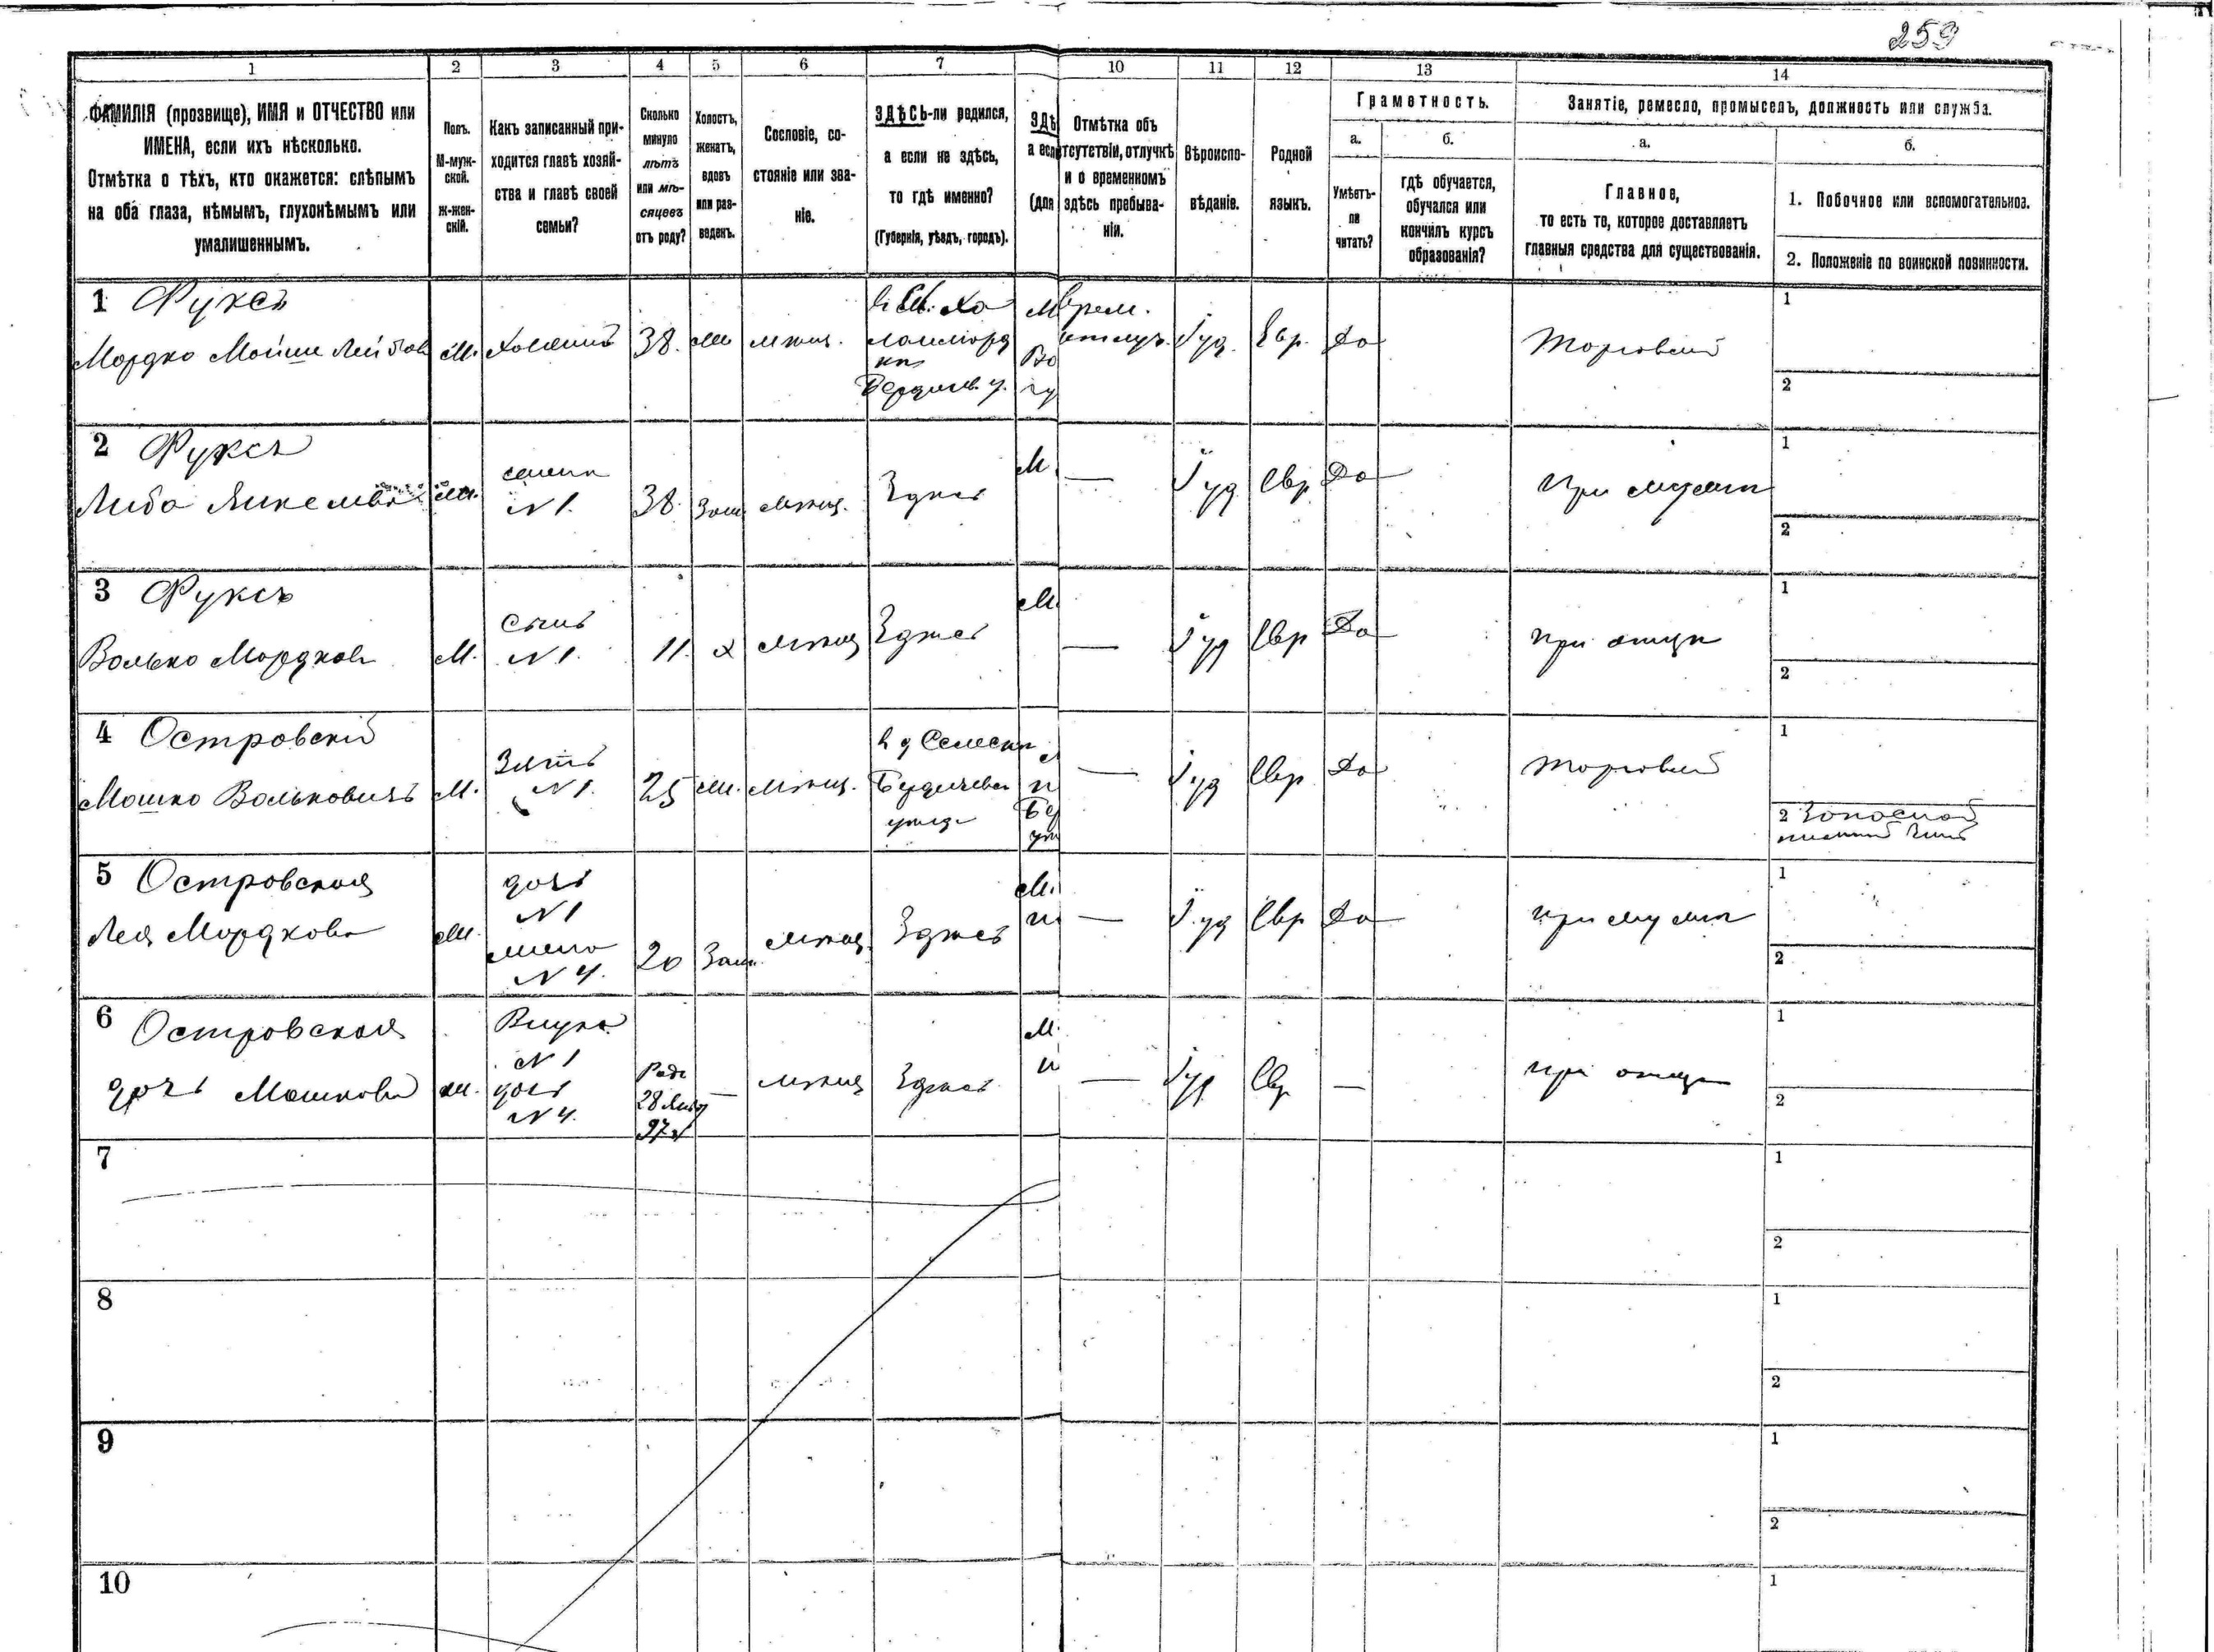 259
1 2 3 4 5 6 7 10 11 12 13 14
ФАМИЛІЯ (прозвище), ИМЯ и ОТЧЕСТВО или
ИМЕНА, если ихъ нѣсколько.
Отмѣтка о тѣхъ, кто окажется: слѣпымъ
на оба глаза, нѣмымъ, глухонѣмымъ или
умалишеннымъ.
Полъ.
М-муж-
ской.
Ж-жен-
скій.
Какъ записанный при-
ходится главѣ хозяй-
ства и главѣ своей
семьи?
Сколько
минуло
лѣтъ
или мѣ-
сяцевъ
отъ роду?
Холостъ,
женатъ,
вдовъ
или раз-
веденъ.
Сословіе, со-
стояніе или зва-
ніе.
ЗДѢСЬ-ли родился,
а если не здѣсь,
то гдѣ именно?
(Губернія, уѣздъ, городъ).
ЗДѢ
а если
(для
Отмѣтка объ
тсутствіи, отлучкѣ
и о временномъ
здѣсь пребыва-
ніи.
Вѣроиспо-
вѣданіе.
Родной
языкъ.
Грамотность.
а.
Умѣетъ-
ли
читать?
б.
гдѣ обучается,
обучался или
кончилъ курсъ
образованія?
Занятіе, ремесло, промыселъ, должность или служба.
а.
Главное,
то есть то, которое доставляетъ
главныя средства для существованія.
б.
1. Побочное или вспомогательное.
2. Положеніе по воинской повинности.
1 Фуксъ
Мордко Мойше Лейбовъ
М.
Хозяинъ
38.
Ж
мѣщ.
Бердичев. у.
М
Врем.
отлуч.
Іуд.
Евр.
Да
Торговецъ
1
2
2 Фуксъ
Либа Янкелева
Ж.
жена
N 1.
38.
Зам
мѣщ.
Здѣсь
М.
—
Іуд
Евр
Да
При мужѣ
1
2
3 Фуксъ
Волько Мордковъ
М.
Сынъ
N 1.
11.
Х
мѣщ
Здѣсь
М.
—
Іуд
Евр
Да
при отцѣ
1
2
4 Островскій
Мошко Вольковичъ
М.
Зять
N 1.
25
Ж.
мѣщ.
Бердичевск
уѣзда
—
Іуд
Евр
Да
Торговецъ
1
2
5 Островская
Лея Мордкова
Ж.
дочь
N 1
жена
N 4.
20
Зам.
мѣщ.
Здѣсь
М.
—
Іуд
Евр
Да
при мужѣ
1
2
6 Островская
дочь Мошкова
Ж.
Внука
N 1
дочь
N 4.
Род.
28 Янв
97 г
—
мѣщ
Здѣсь
М.
—
Іуд
Евр
—
при отцѣ
1
2
7
1
2
8
1
2
9
1
2
10
1